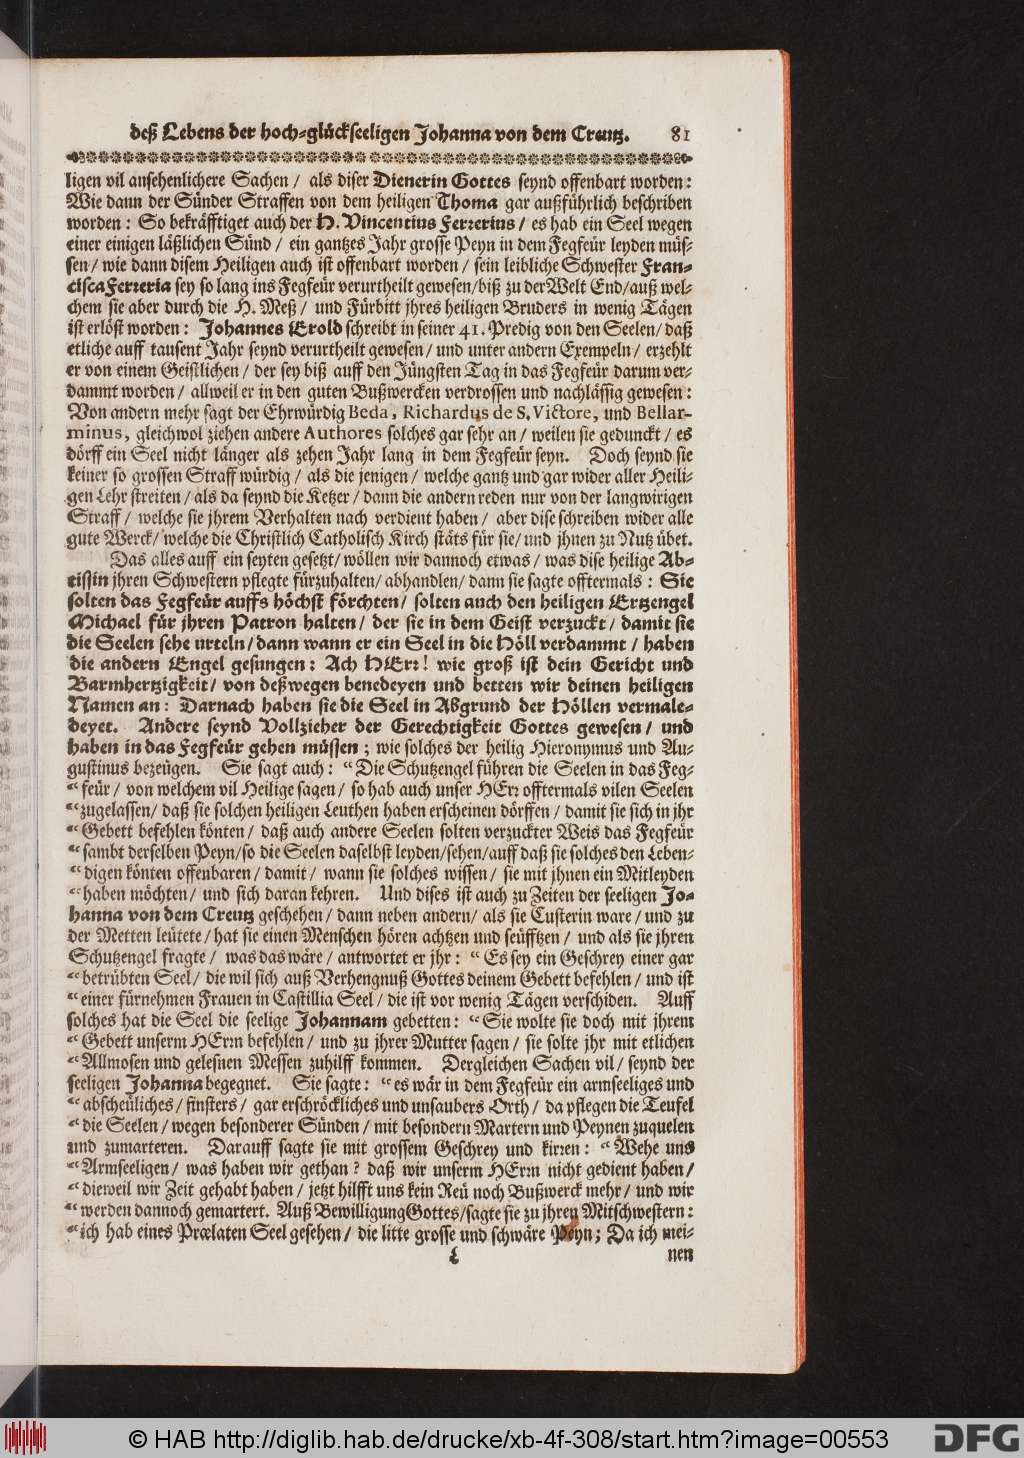 deß Lebens der hoch-glückseeligen Johanna von dem Creutz. 81
ligen vil ansehenlichere Sachen / als diser Dienerin Gottes seynd offenbart worden:
Wie dann der Sünder Straffen von dem heiligen Thoma gar außführlich beschriben
worden: So bekräfftiget auch der H. Vincentius Ferrerius / es hab ein Seel wegen
einer einigen läßlichen Sünd / ein gantzes Jahr grosse Peyn in dem Fegfeür leyden müs-
sen / wie dann disem Heiligen auch ist offenbart worden / sein leibliche Schwester Fran-
cisca Ferreria sey so lang ins Fegfeür verurtheilt gewesen / biß zu der Welt End / auß wel-
chem sie aber durch die H. Meß / und Fürbitt jhres heiligen Bruders in wenig Tägen
ist erlöst worden: Johannes Erold schreibt in seiner 41. Predig von den Seelen / daß
etliche auff tausent Jahr seynd verurtheilt gewesen / und unter andern Exempeln / erzehlt
er von einem Geistlichen / der sey biß auff den Jüngsten Tag in das Fegfeür darum ver-
dammt worden / allweil er in den guten Bußwercken verdrossen und nachlässig gewesen:
Von andern mehr sagt der Ehrwürdig Beda, Richardus de S. Victore, und Bellar-
minus, gleichwol ziehen andere Authores solches gar sehr an / weilen sie gedunckt / es
dörff ein Seel nicht länger als zehen Jahr lang in dem Fegfeür seyn. Doch seynd sie
keiner so grossen Straff würdig / als die jenigen / welche gantz und gar wider aller Heili-
gen Lehr streiten / als da seynd die Ketzer / dann die andern reden nur von der langwirigen
Straff / welche sie jhrem Verhalten nach verdient haben / aber dise schreiben wider alle
gute Werck / welche die Christlich Catholisch Kirch stäts für sie / und jhnen zu Nutz übet.
Das alles auff ein seyten gesetzt / wöllen wir dannoch etwas / was dise heilige Ab-
tissin jhren Schwestern pflegte fürzuhalten / abhandlen / dann sie sagte offtermals: Sie
solten das Fegfeür auffs höchst förchten / solten auch den heiligen Ertzengel
Michael für jhren Patron halten / der sie in dem Geist verzuckt / damit sie
die Seelen sehe urteln / dann wann er ein Seel in die Höll verdammt / haben
die andern Engel gesungen: Ach HErr! wie groß ist dein Gericht und
Barmhertzigkeit / von deßwegen benedeyen und betten wir deinen heiligen
Namen an: Darnach haben sie die Seel in Abgrund der Höllen vermale-
deyet. Andere seynd Vollzieher der Gerechtigkeit Gottes gewesen / und
haben in das Fegfeür gehen müssen; wie solches der heilig Hieronymus und Au-
gustinus bezeügen. Sie sagt auch: “Die Schutzengel führen die Seelen in das Feg-
“feür / von welchem vil Heilige sagen / so hab auch unser HErr offtermals vilen Seelen
“zugelassen / daß sie solchen heiligen Leuthen haben erscheinen dörffen / damit sie sich in jhr
“Gebett befehlen könten / daß auch andere Seelen solten verzuckter Weis das Fegfeür
“sambt derselben Peyn / so die Seelen daselbst leyden / sehen / auff daß sie solches den Leben-
“digen könten offenbaren / damit / wann sie solches wissen / sie mit jhnen ein Mitleyden
“haben möchten / und sich daran kehren. Und dises ist auch zu Zeiten der seeligen Jo-
hanna von dem Creutz geschehen / dann neben andern / als sie Custerin ware / und zu
der Metten leütete / hat sie einen Menschen hören achtzen und seüfftzen / und als sie jhren
Schutzengel fragte / was das wäre / antwortet er jhr: “Es sey ein Geschrey einer gar
“betrübten Seel / die wil sich auß Verhengnuß Gottes deinem Gebett befehlen / und ist
“einer fürnehmen Frauen in Castillia Seel / die ist vor wenig Tägen verschiden. Auff
solches hat die Seel die seelige Johannam gebetten: “Sie wolte sie doch mit jhrem
“Gebett unserm HErrn befehlen / und zu jhrer Mutter sagen / sie solte jhr mit etlichen
“Allmosen und gelesnen Messen zuhilff kommen. Dergleichen Sachen vil / seynd der
seeligen Johanna begegnet. Sie sagte: “es wär in dem Fegfeür ein armseeliges und
“abscheüliches / finsters / gar erschröckliches und unsaubers Orth / da pflegen die Teufel
“die Seelen / wegen besonderer Sünden / mit besondern Martern und Peynen zuquelen
und zumarteren. Darauff sagte sie mit grossem Geschrey und kirren: “Wehe uns
“Armseeligen / was haben wir gethan? daß wir unserm HErrn nicht gedient haben /
“dieweil wir Zeit gehabt haben / jetzt hilfft uns kein Reü noch Bußwerck mehr / und wir
“werden dannoch gemartert. Auß Bewilligung Gottes / sagte sie zu jhren Mitschwestern:
“ich hab eines Prælaten Seel gesehen / die litte grosse und schwäre Peyn; Da ich mei-
L nen
© HAB http://diglib.hab.de/drucke/xb-4f-308/start.htm?image=00553
DFG